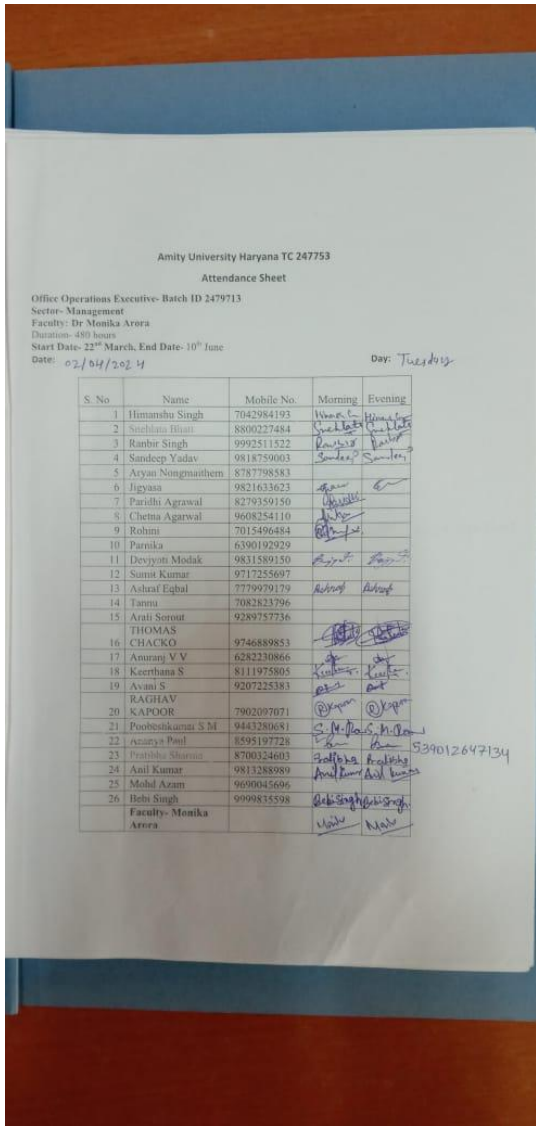 Amity University Haryana TC 247753
Attendance Sheet
Office Operations Executive- Batch ID 2479713
Sector- Management
Faculty: Dr Monika Arora
Duration- 480 hours
Start Date- 22nd March, End Date- 10th June
Date: 02/04/2024 Day: Tuesday
S. No Name Mobile No. Morning Evening
1 Himanshu Singh 7042984193
2 Snehlata Bhati 8800227484 Snehlata Snehlata
3 Ranbir Singh 9992511522
4 Sandeep Yadav 9818759003 Sandeep Sandeep
5 Aryan Nongmaithem 8787798583
6 Jigyasa 9821633623
7 Paridhi Agrawal 8279359150
8 Chetna Agarwal 9608254110
9 Rohini 7015496484
10 Parnika 6390192929
11 Devjyoti Modak 9831589150
12 Sumit Kumar 9717255697
13 Ashraf Eqbal 7779979179 Ashraf Ashraf
14 Tannu 7082823796
15 Arati Sorout 9289757736
THOMAS
16 CHACKO 9746889853
17 Anuranj V V 6282230866
18 Keerthana S 8111975805
19 Avani S 9207225383
RAGHAV
20 KAPOOR 7902097071 Kapoor Kapoor
21 Poobeshkumar S M 9443280681
22 Ananya Paul 8595197728
539012647134
23 Pratibha Sharma 8700324603 Pratibha Pratibha
24 Anil Kumar 9813288989 Anil Kumar Anil Kumar
25 Mohd Azam 9690045696
26 Bebi Singh 9999835598 Bebi Singh Bebi Singh
Faculty- Monika
Arora